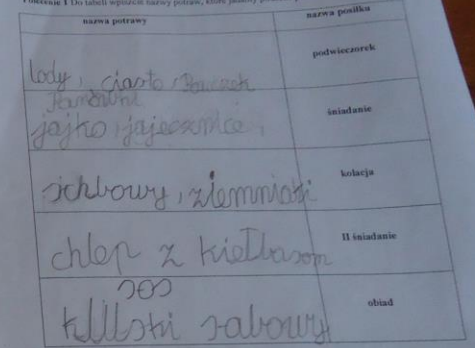 Polecenie 1 Do tabeli wpiszcie nazwy potraw, które
nazwa potrawy nazwa posiłku
lody, ciasto, podwieczorek
jajko, jajecznice, śniadanie
schbowy, ziemniaki kolacja
chlep z kiełbasom II śniadanie
sos
kluski sabowy obiad